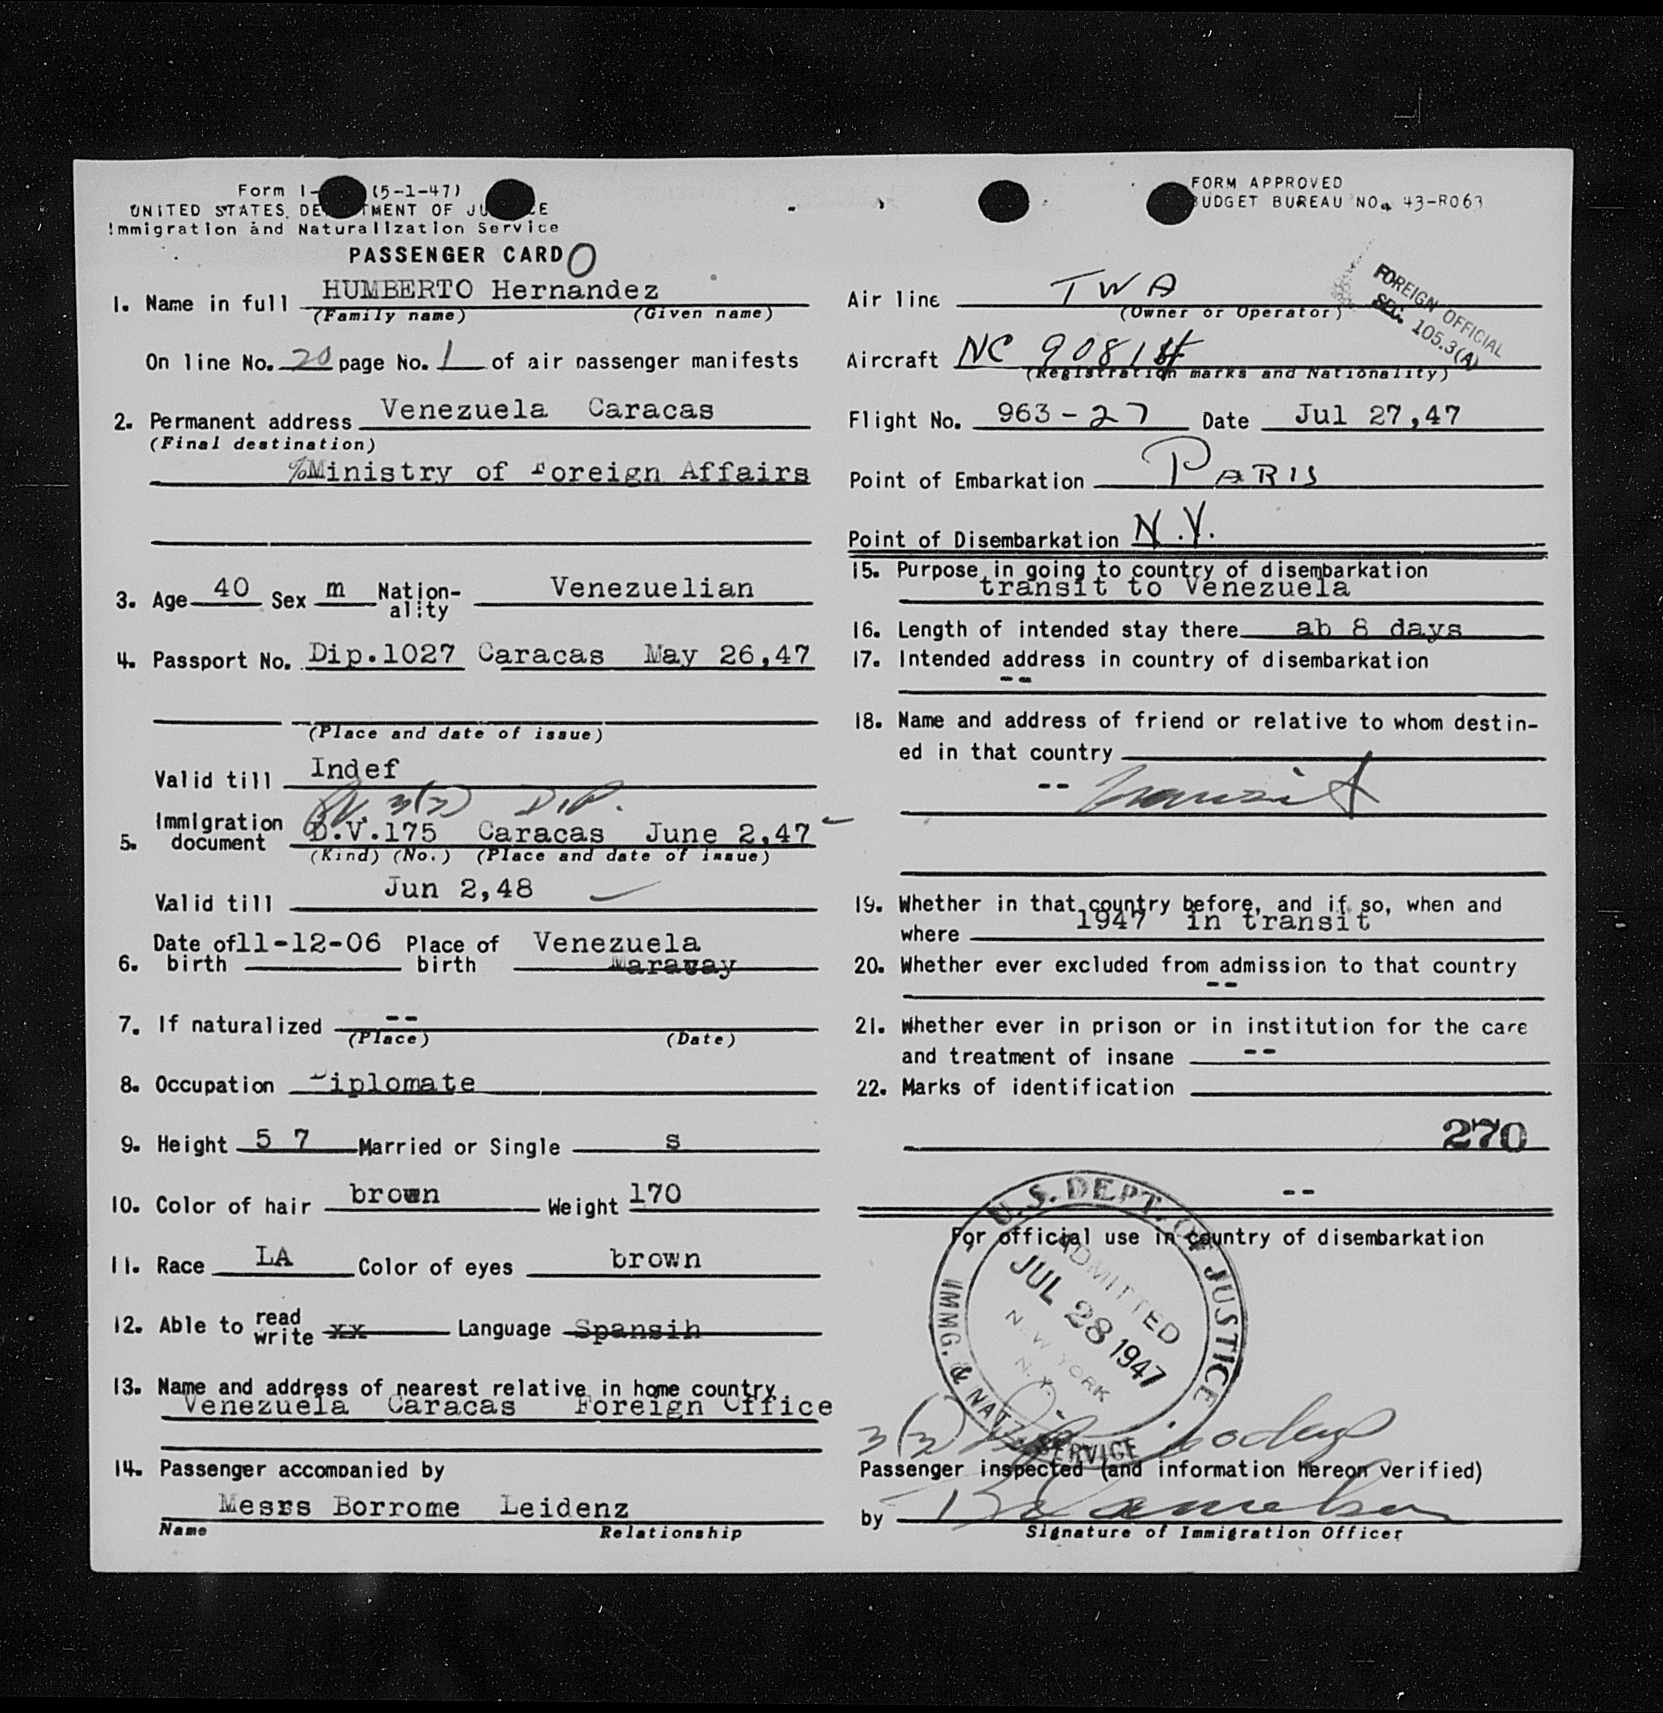 Form I- (5-1-47)
UNITED STATES DE TMENT OF JU CE
Immigration and Naturalization Service
PASSENGER CARD 0
1. Name in full HUMBERTO Hernandez
(Family name) (Given name)
On line No. 20 page No. 1 of air passenger manifests
2. Permanent address Venezuela Caracas
(Final destination)
%Ministry of Foreign Affairs
3. Age 40 Sex m Nation-ality Venezuelian
4. Passport No. Dip.1027 Caracas May 26,47
(Place and date of issue)
Valid till Indef
3(2) Dip.
5. Immigration document D.V.175 Caracas June 2,47
(Kind) (No.) (Place and date of issue)
Valid till Jun 2,48
6. Date of birth 11-12-06 Place of birth Venezuela
Maraway
7. If naturalized --
(Place) (Date)
8. Occupation Diplomate
9. Height 5 7 Married or Single s
10. Color of hair brown Weight 170
11. Race LA Color of eyes brown
12. Able to read write xx Language Spansih
13. Name and address of nearest relative in home country
Venezuela Caracas Foreign Office
14. Passenger accompanied by
Mesrs Borrome Leidenz
Name Relationship
FORM APPROVED
BUDGET BUREAU NO. 43-R063
FOREIGN OFFICIAL
SEC. 105.3(A)
Air line TWA
(Owner or Operator)
Aircraft NC 90814
(Registration marks and Nationality)
Flight No. 963-27 Date Jul 27,47
Point of Embarkation PARIS
Point of Disembarkation N.Y.
15. Purpose in going to country of disembarkation
transit to Venezuela
16. Length of intended stay there ab 8 days
17. Intended address in country of disembarkation
--
18. Name and address of friend or relative to whom destin-
ed in that country
-- Transit
19. Whether in that country before, and if so, when and
where 1947 in transit
20. Whether ever excluded from admission to that country
--
21. Whether ever in prison or in institution for the care
and treatment of insane --
22. Marks of identification
270
--
For official use in country of disembarkation
U.S. DEPT. OF JUSTICE
ADMITTED
JUL 28 1947
NEW YORK
N.Y.
IMMG. & NATZ. SERVICE
3(2)
Passenger inspected (and information hereon verified)
by
Signature of Immigration Officer